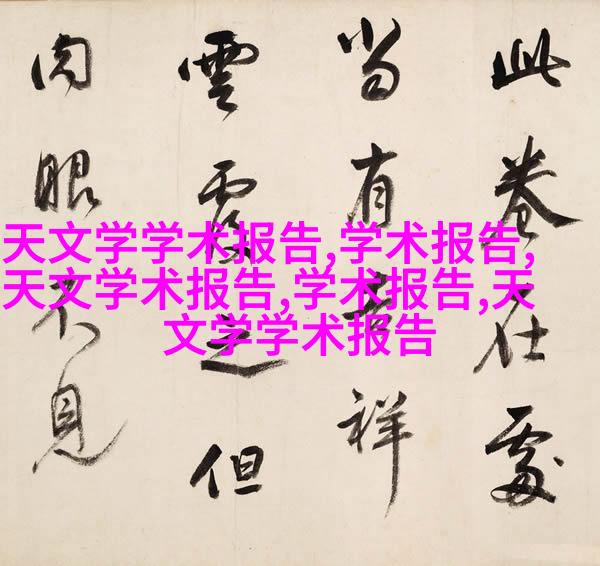 此卷在處
當有吉祥
雲覆之但
肉眼不見
天文学学术报告,学术报告,
天文学术报告,学术报告,天
文学学术报告